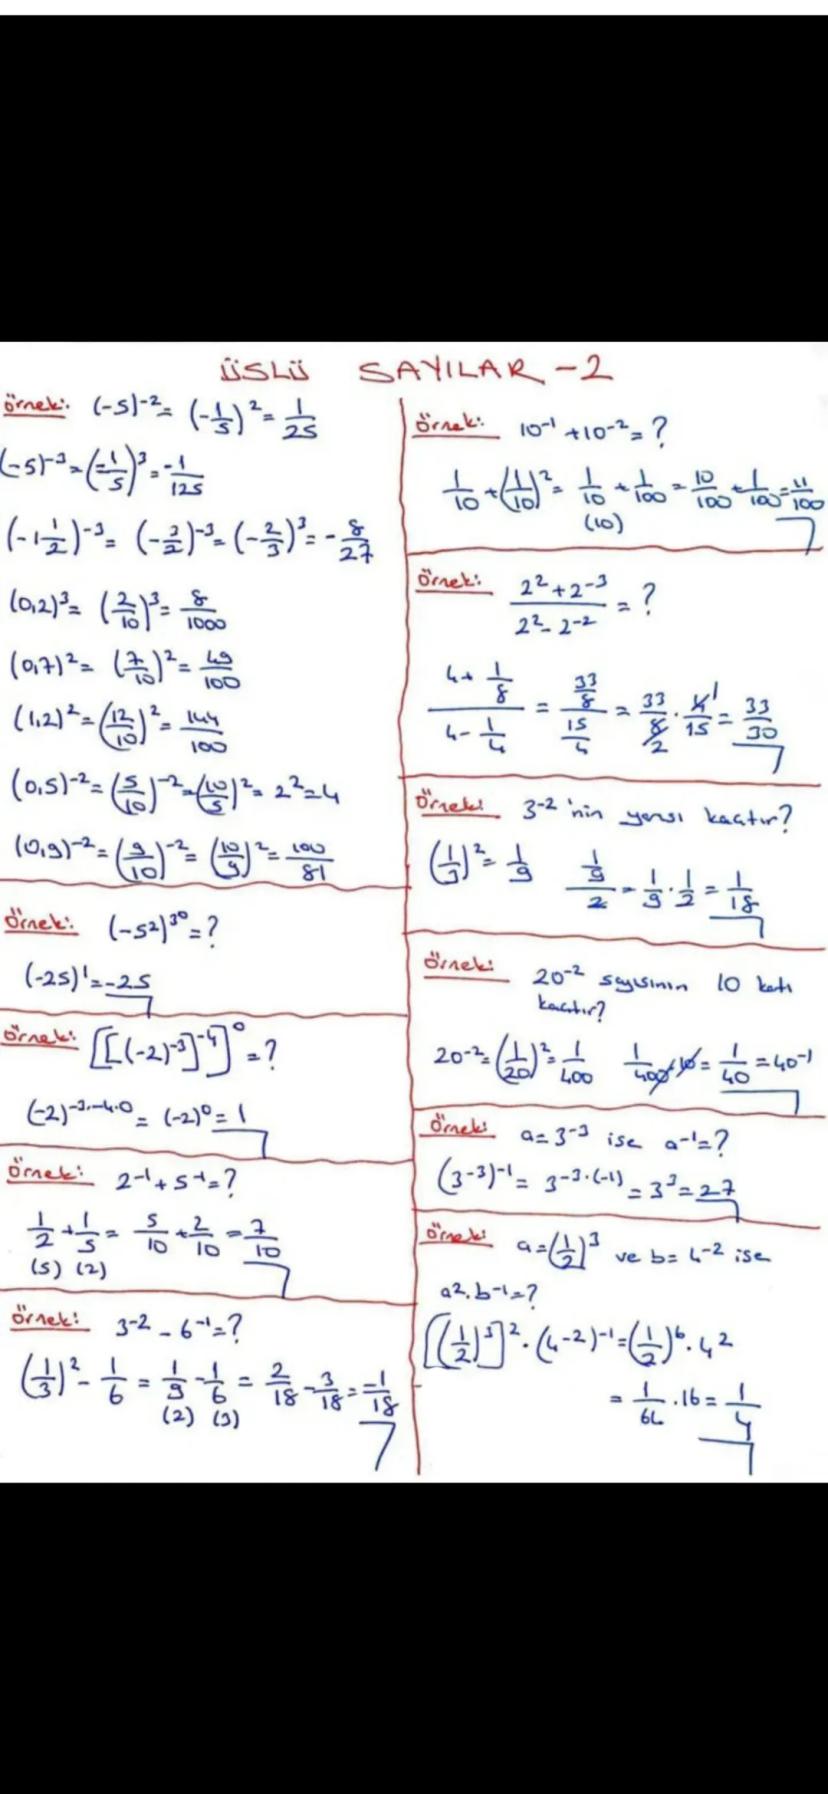 ÜSLÜ SAYILAR -2
Örnek: (-5)⁻² = (-1/5)² = 1/25
(-5)⁻³ = (-1/5)³ = -1/125
(-1 1/2)⁻³ = (-3/2)⁻³ = (-2/3)³ = -8/27
(0,2)³ = (2/10)³ = 8/1000
(0,7)² = (7/10)² = 49/100
(1,2)² = (12/10)² = 144/100
(0,5)⁻² = (5/10)⁻² = (10/5)² = 2² = 4
(0,9)⁻² = (9/10)⁻² = (10/9)² = 100/81
Örnek: (-5²)^3⁰ = ?
(-25)¹ = -25
Örnek: [[(-2)⁻³]⁻⁴]⁰ = ?
(-2)^-3.-4.0 = (-2)⁰ = 1
Örnek: 2⁻¹ + 5⁻¹ = ?
1/2 + 1/5 = 5/10 + 2/10 = 7/10
(5) (2)
Örnek: 3⁻² - 6⁻¹ = ?
(1/3)² - 1/6 = 1/9 - 1/6 = 2/18 - 3/18 = -1/18
(2) (3)
Örnek: 10⁻¹ + 10⁻² = ?
1/10 + (1/10)² = 1/10 + 1/100 = 10/100 + 1/100 = 11/100
(10)
Örnek: (2² + 2⁻³)/(2² - 2⁻²) = ?
(4 + 1/8)/(4 - 1/4) = (33/8)/(15/4) = 33/8 . 4/15 = 33/30
2 1
Örnek: 3⁻² 'nin yarısı kaçtır?
(1/3)² = 1/9 (1/9)/2 = 1/9 . 1/2 = 1/18
Örnek: 20⁻² sayısının 10 katı
kaçtır?
20⁻² = (1/20)² = 1/400 1/400 . 10 = 1/40 = 40⁻¹
Örnek: a = 3⁻³ ise a⁻¹ = ?
(3⁻³)⁻¹ = 3^-3.(-1) = 3³ = 27
Örnek: a = (1/2)³ ve b = 4⁻² ise
a² . b⁻¹ = ?
[(1/2)³]² . (4⁻²)⁻¹ = (1/2)⁶ . 4²
= 1/64 . 16 = 1/4